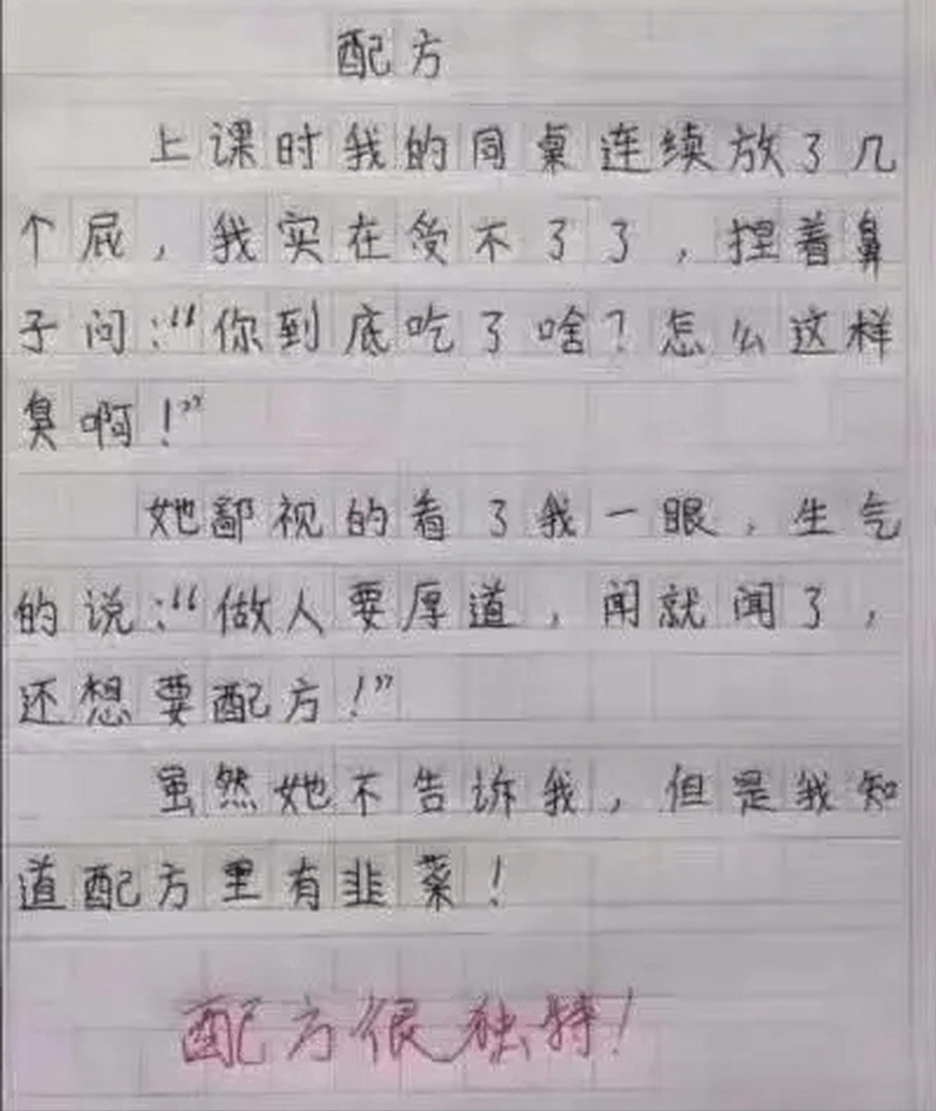 配方
上课时我的同桌连续放了几
个屁，我实在受不了了，捏着鼻
子问：“你到底吃了啥？怎么这样
臭啊！”
她鄙视的看了我一眼，生气
的说：“做人要厚道，闻就闻了，
还想要配方！”
虽然她不告诉我，但是我知
道配方里有韭菜！
配方很独特！